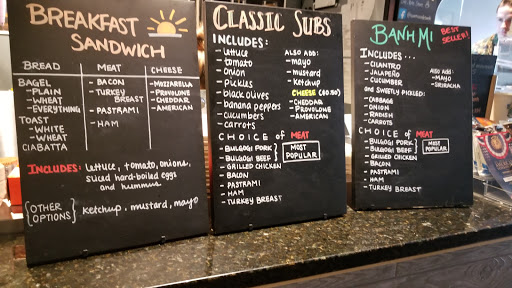 BREAKFAST
SANDWICH
BREAD MEAT CHEESE
BAGEL
- PLAIN
- WHEAT
- EVERYTHING
TOAST
- WHITE
- WHEAT
CIABATTA
- BACON
- TURKEY
BREAST
- PASTRAMI
- HAM
- MOZZARELLA
- PROVOLONE
- CHEDDAR
- AMERICAN
INCLUDES: lettuce, tomato, onions,
sliced hard-boiled eggs
and hummus
{OTHER
OPTIONS} ketchup, mustard, mayo
CLASSIC SUBS
INCLUDES:
- lettuce
- tomato
- onion
- pickles
- black olives
- banana peppers
- cucumbers
- carrots
ALSO ADD:
- mayo
- mustard
- ketchup
CHEESE (+0.50)
- CHEDDAR
- PROVOLONE
- AMERICAN
CHOICE of MEAT
- BULGOGI PORK
- BULGOGI BEEF
MOST
POPULAR
- GRILLED CHICKEN
- BACON
- PASTRAMI
- HAM
- TURKEY BREAST
BANH MI
BEST
SELLER!
INCLUDES...
- CILANTRO
- JALAPEÑO
- CUCUMBER
and SWEETLY PICKLED:
- CABBAGE
- ONION
- RADISH
- CARROTS
Also ADD:
- MAYO
- SRIRACHA
CHOICE of MEAT
- BULGOGI PORK
- BULGOGI BEEF
MOST
POPULAR
- GRILLED CHICKEN
- BACON
- PASTRAMI
- HAM
- TURKEY BREAST